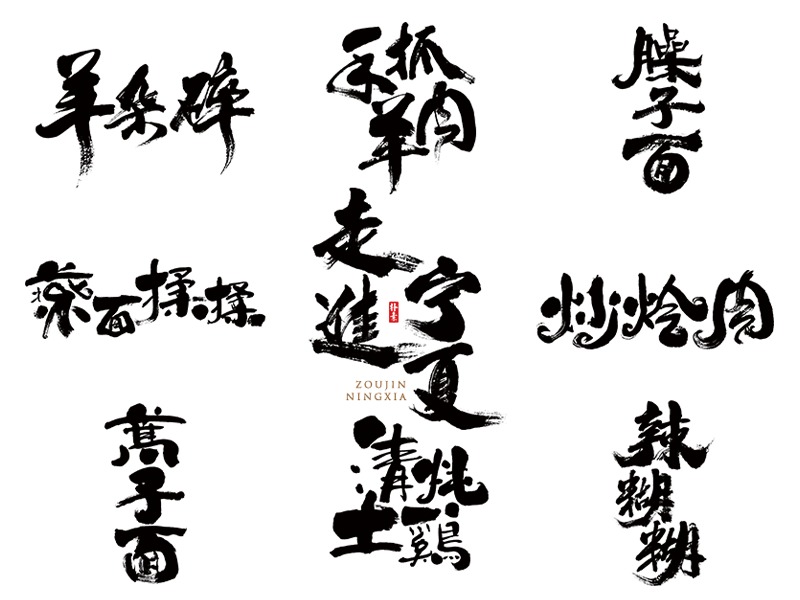 羊杂碎
手抓
羊肉
臊子面
燕面揉揉
走進
宁夏
ZOUJIN
NINGXIA
炒烩肉
蒿子面
清炖
土鷄
辣糊糊